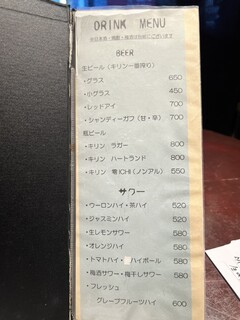 DRINK MENU
BEER
生ビール（キリン一番搾り）
・グラス 650
・小グラス 450
・レッドアイ 700
・シャンディーガフ（甘・辛） 700
瓶ビール
・キリン ラガー 800
・キリン ハートランド 800
・キリン 零ICHI（ノンアル） 550
サワー
・ウーロンハイ・茶ハイ 520
・ジャスミンハイ 520
・生レモンサワー 580
・オレンジハイ 580
・トマトハイ・ ハイボール 580
・梅酒サワー・梅干しサワー 580
・フレッシュ
グレープフルーツハイ 600